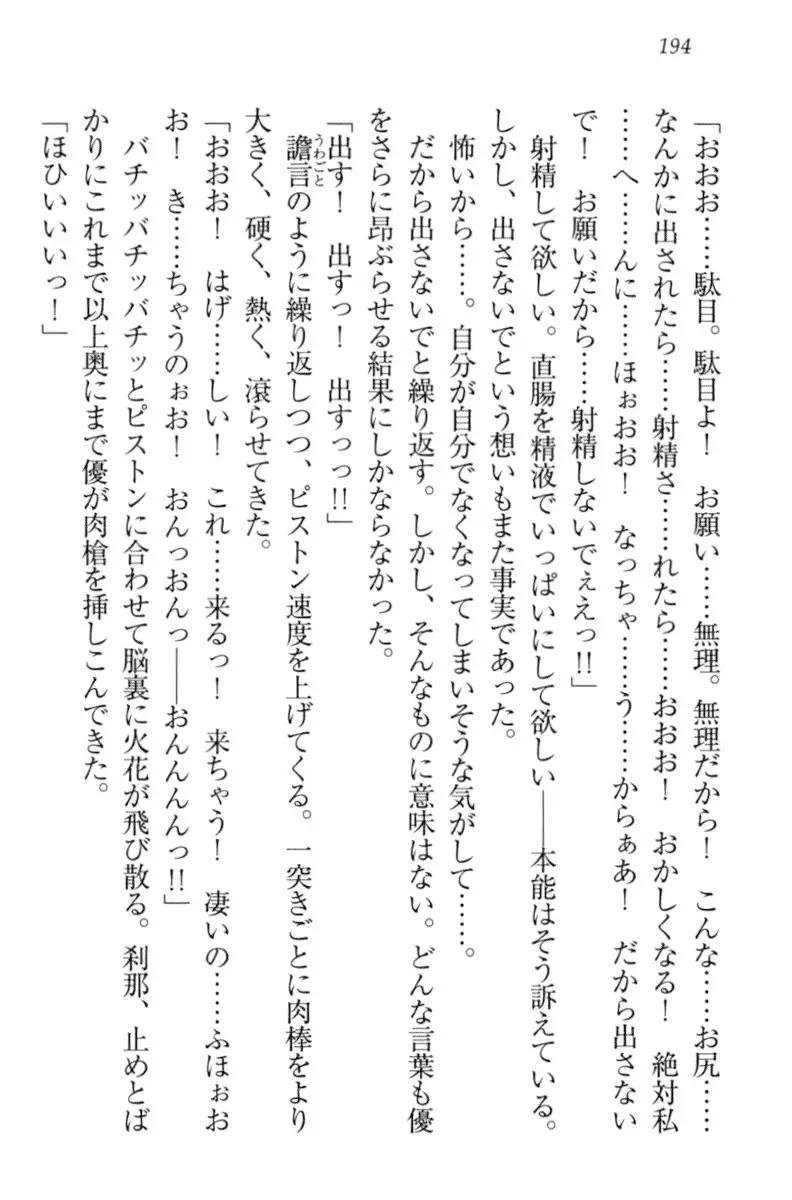 194
「おおお……駄目。駄目よ!　お願い……無理。無理だから!　こんな……お尻……
なんかに出されたら……射精さ……れたら……おおお!　おかしくなる!　絶対私
……へ……んに……ほぉおお!　なっちゃ……う……からぁあ!　だから出さない
で!　お願いだから……射精しないでぇえっ!!」
　射精して欲しい。直腸を精液でいっぱいにして欲しい――本能はそう訴えている。
しかし、出さないでという想いもまた事実であった。
　怖いから……。自分が自分でなくなってしまいそうな気がして……。
　だから出さないでと繰り返す。しかし、そんなものに意味はない。どんな言葉も優
をさらに昂ぶらせる結果にしかならなかった。
「出す!　出すっ!　出すっっ!!」
　譫言うわごとのように繰り返しつつ、ピストン速度を上げてくる。一突きごとに肉棒をより
大きく、硬く、熱く、滾らせてきた。
「おおお!　はげ……しい!　これ……来るっ!　来ちゃう!　凄いの……ふほぉお
お!　き……ちゃうのぉお!　おんっおんっ――おんんんんっ!!」
　バチッバチッバチッとピストンに合わせて脳裏に火花が飛び散る。刹那、止めとば
かりにこれまで以上奥にまで優が肉槍を挿しこんできた。
「ほひいいいっ!」